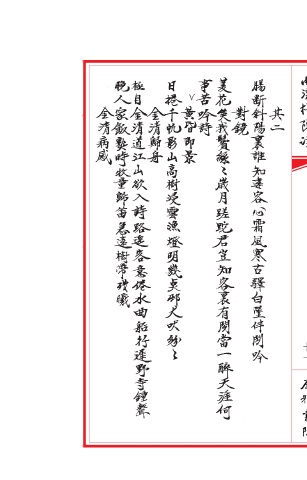 其二
腸斷斜陽裏誰知達客心霜風寒古驛白墮伴閒吟
對鏡
美花笑我鬢絲〻歲月蹉跎君豈知客裏有閒當一醉天涯何
事苦吟詩
黃昏即景
日捲千帆影山高樹浸雲漁燈明幾點邨犬吠紛〻
全清歸舟
極目全清道江山欲入詩路遙春意倦水曲船行遲野寺鐘聲
晚人家飯熟時牧童歸笛急遠樹帶殘曦
全清病感